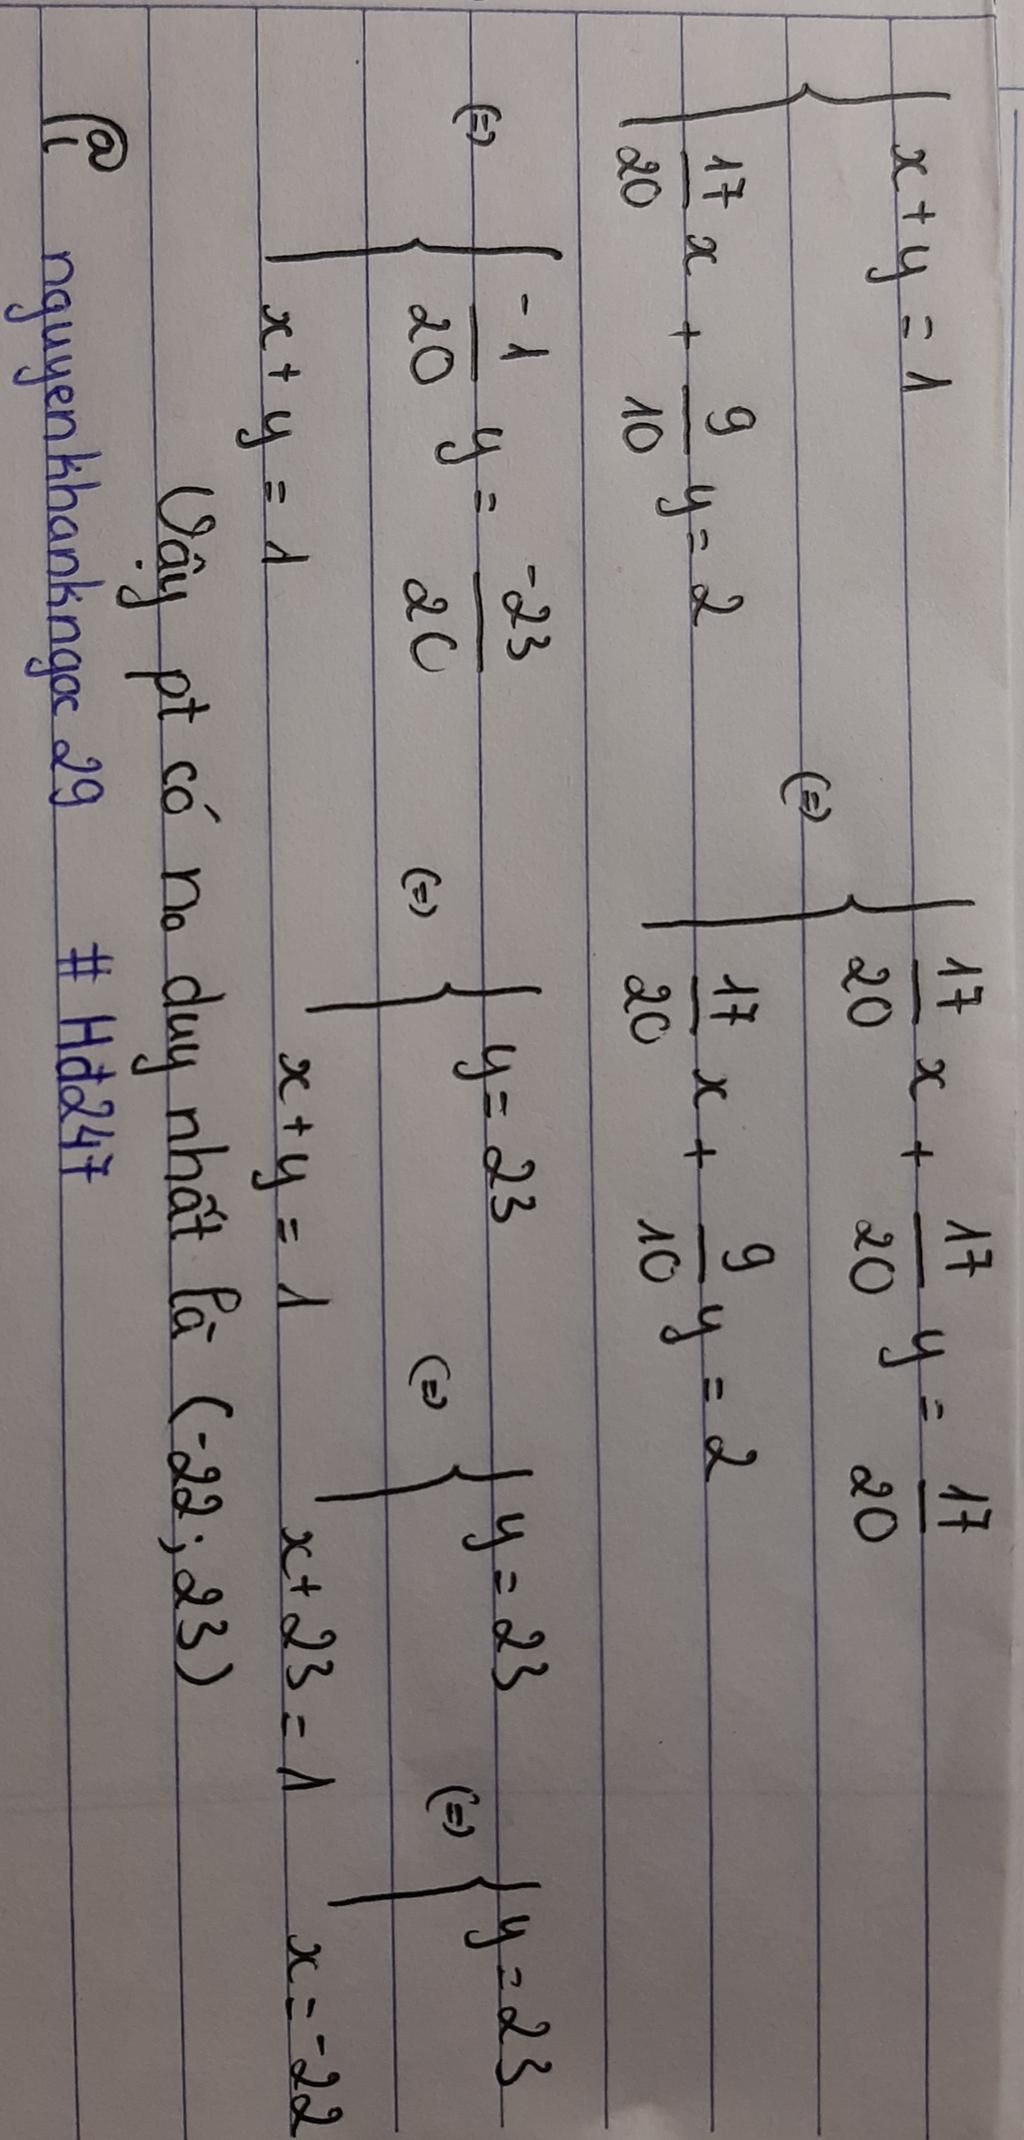 x + y = 1 (=) 17/20 x + 17/20 y = 17/20
17/20 x + 9/10 y = 2 17/20 x + 9/10 y = 2
(=) -1/20 y = -23/20 (=) y = 23 (=) y = 23 (=) y = 23
x + y = 1 x + y = 1 x + 23 = 1 x = -22
Vậy pt có no duy nhất là (-22; 23)
@ nguyenkhankngoc29 # Hđ247